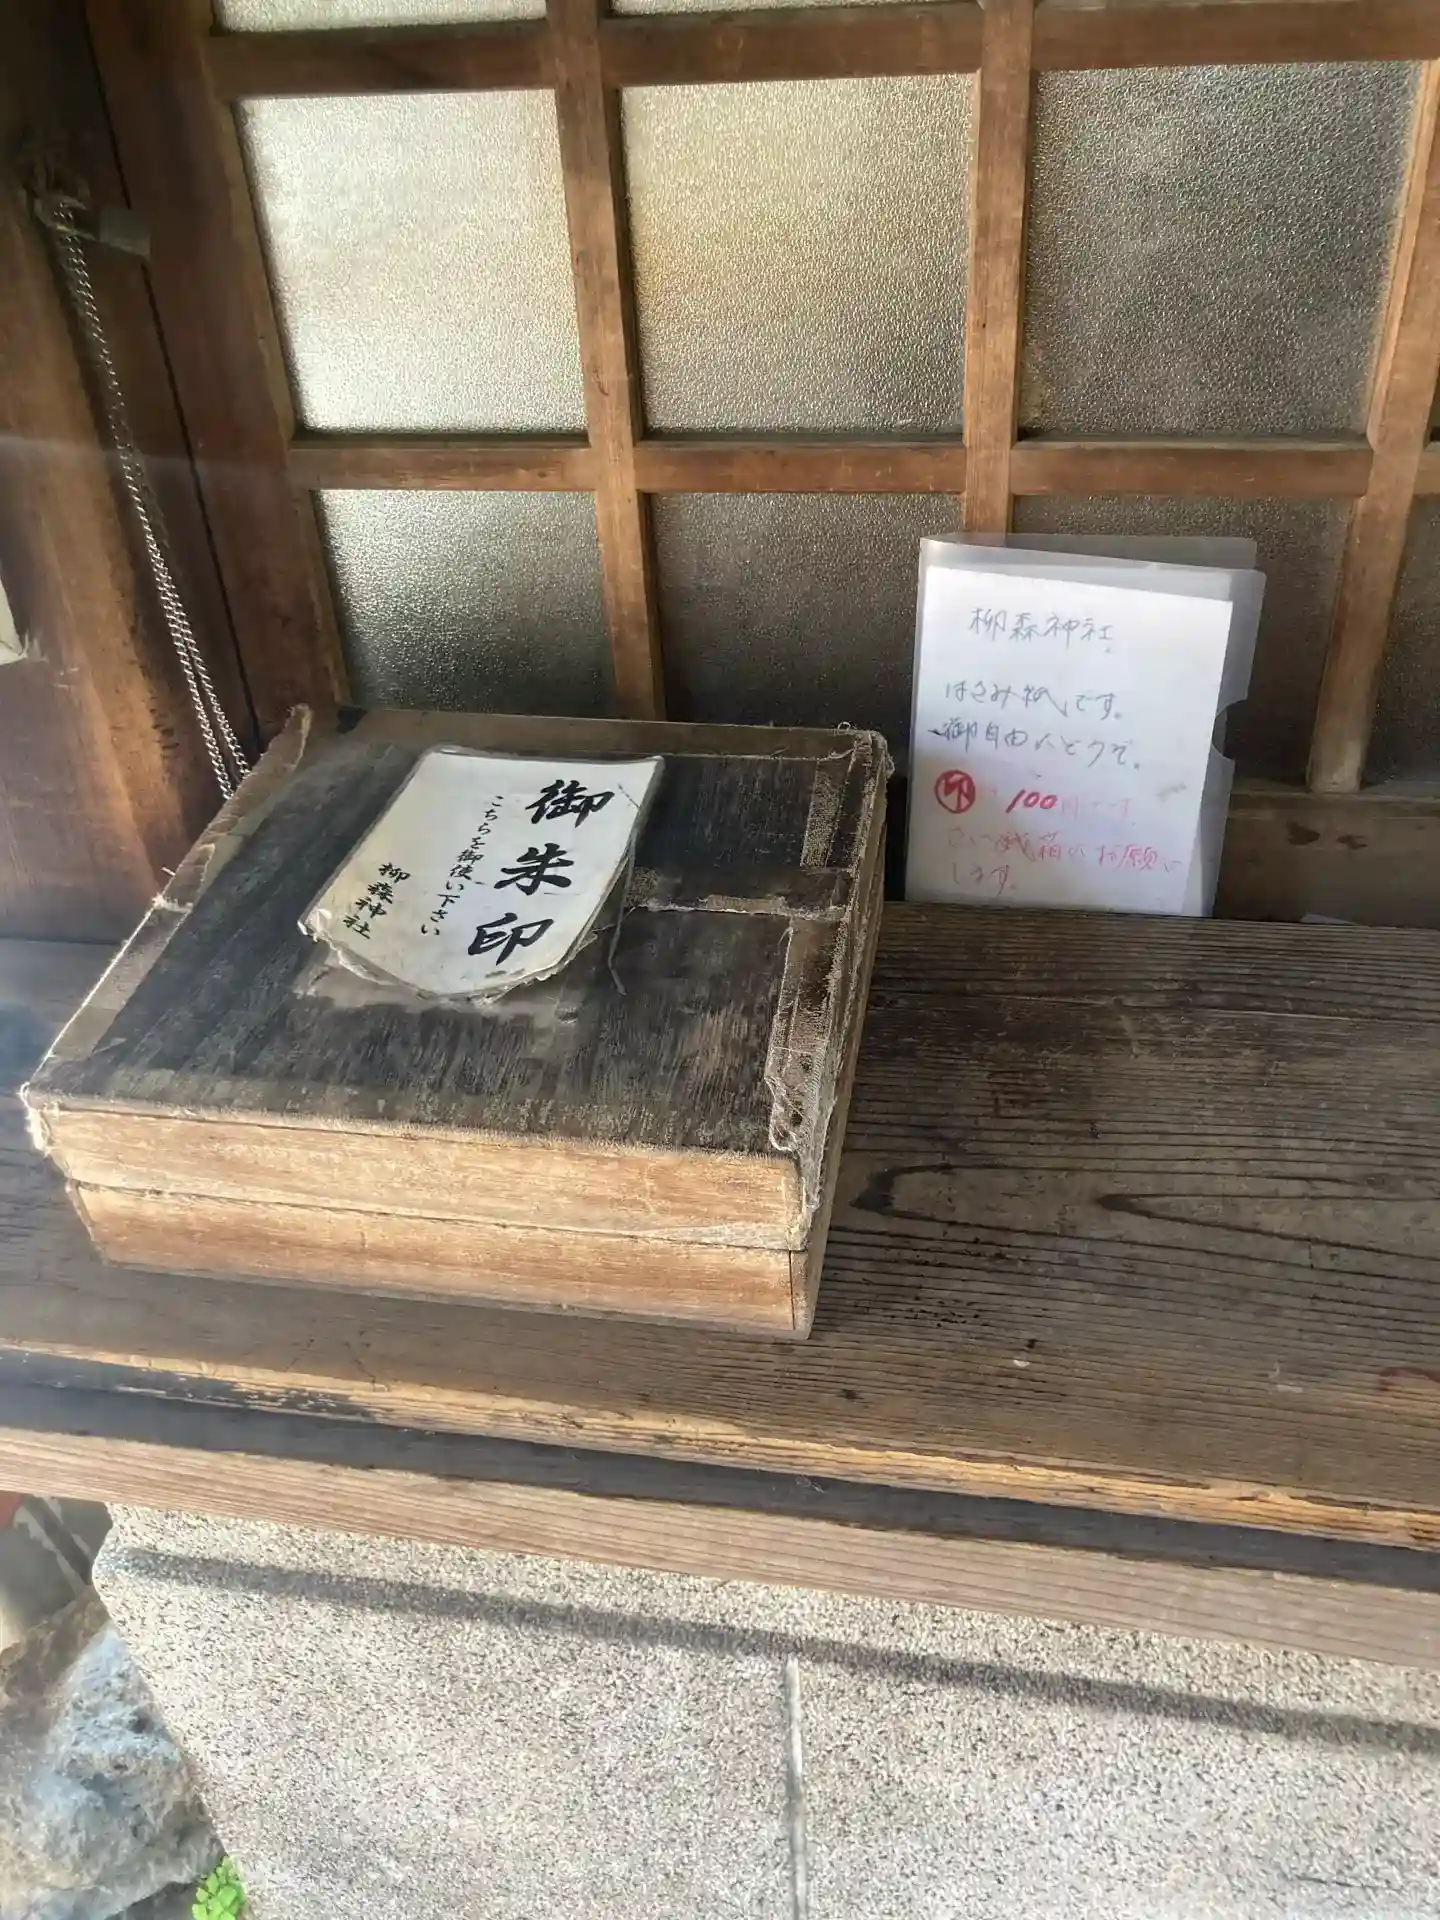 御朱印
こちらを御使い下さい
柳森神社
柳森神社。
はさみ紙です。
御自由にどうぞ。
100円です。
さい銭箱にお願い
します。